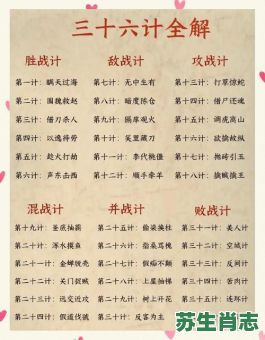 三十六计全解
胜战计 敌战计 攻战计
第一计：瞒天过海 第七计：无中生有 第十三计：打草惊蛇
第二计：围魏救赵 第八计：暗度陈仓 第十四计：借尸还魂
第三计：借刀杀人 第九计：隔岸观火 第十五计：调虎离山
第四计：以逸待劳 第十计：笑里藏刀 第十六计：欲擒故纵
第五计：趁火打劫 第十一计：李代桃僵 第十七计：抛砖引玉
第六计：声东击西 第十二计：顺手牵羊 第十八计：擒贼擒王
混战计 并战计 败战计
第十九计：釜底抽薪 第二十五计：偷梁换柱 第三十一计：美人计
第二十计：浑水摸鱼 第二十六计：指桑骂槐 第三十二计：空城计
第二十一计：金蝉脱壳 第二十七计：假痴不癫 第三十三计：反间计
第二十二计：关门捉贼 第二十八计：上屋抽梯 第三十四计：苦肉计
第二十三计：远交近攻 第二十九计：树上开花 第三十五计：连环计
第二十四计：假道伐虢 第三十计：反客为主
苏生肖志